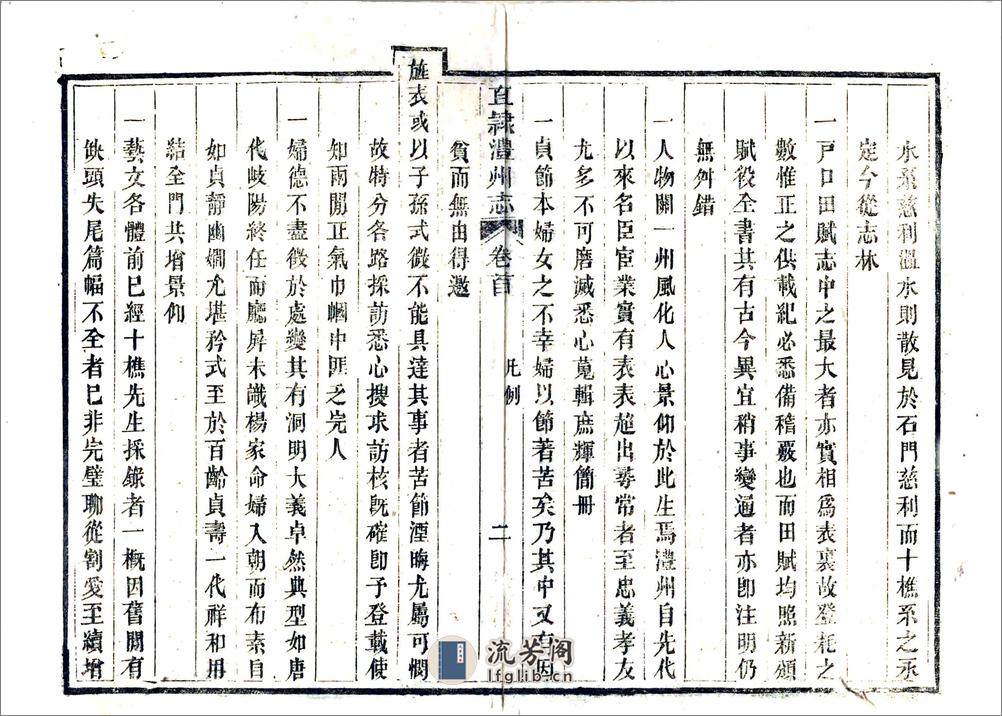 水系慈利溫水則散見於石門慈利而十樵系之承
定今從志林
一戸口田賦志中之最大者亦實相為表裏故登耗之
數惟正之供載紀必悉備稽覈也而田賦均照新頒
賦役全書其有古今異宜稍事變通者亦卽注明仍
無舛錯
一人物關一州風化人心景仰於此生焉澧州自先代
以來名臣宦業實有表表超出尋常者至忠義孝友
尤多不可磨滅悉心蒐輯庶輝簡冊
一貞節本婦女之不幸婦以節著苦矣乃其中又有因
直隷澧州志 卷首 凡例 二
貧而無由得邀
旌表或以子孫式微不能具達其事者苦節湮晦尤屬可憫
故特分各路採訪悉心搜求訪核既確卽予登載使
知兩閒正氣巾幗中匪乏完人
一婦德不盡徵於處變其有洞明大義卓然典型如唐
代岐陽終任而廳屏未識楊家命婦入朝而布素自
如貞靜幽嫺尤堪矜式至於百齡貞壽一代祥和用
結全門共增景仰
一藝文各體前巳經十樵先生採錄者一概因舊閒有
缺頭失尾篇幅不全者巳非完璧聊從割愛至續增
流芳閣
lfglib.cn